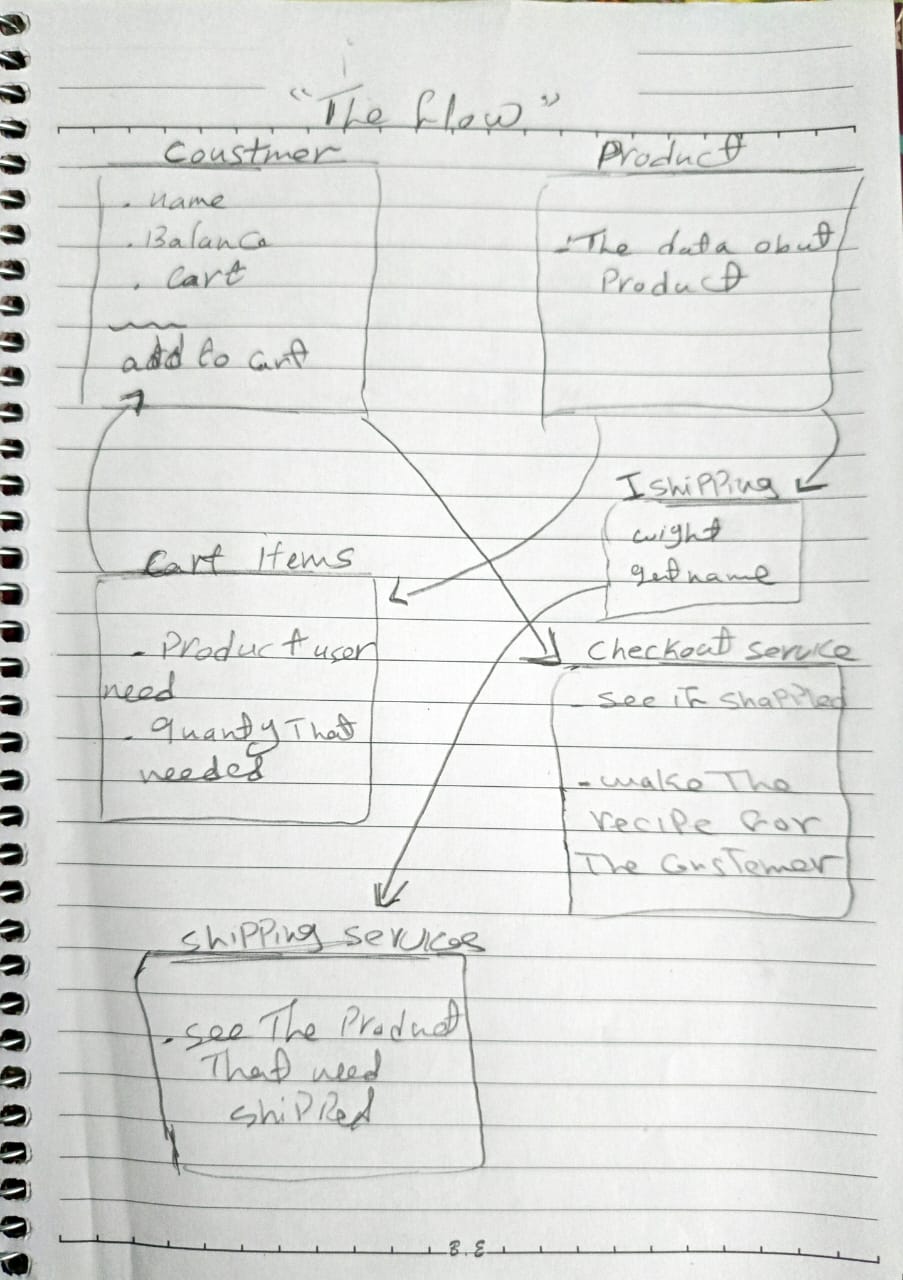 "The flow"
Coustmer
. name
. Balance
. cart
add to cart
Product
- The data obout
Product
I shipping
wight
getname
Cart items
- Product user
need
. quantyThat
needed
checkout service
- see it shappled
- make The
recipe for
The custemer
shipping services
. see The Product
That need
shipped
B.E